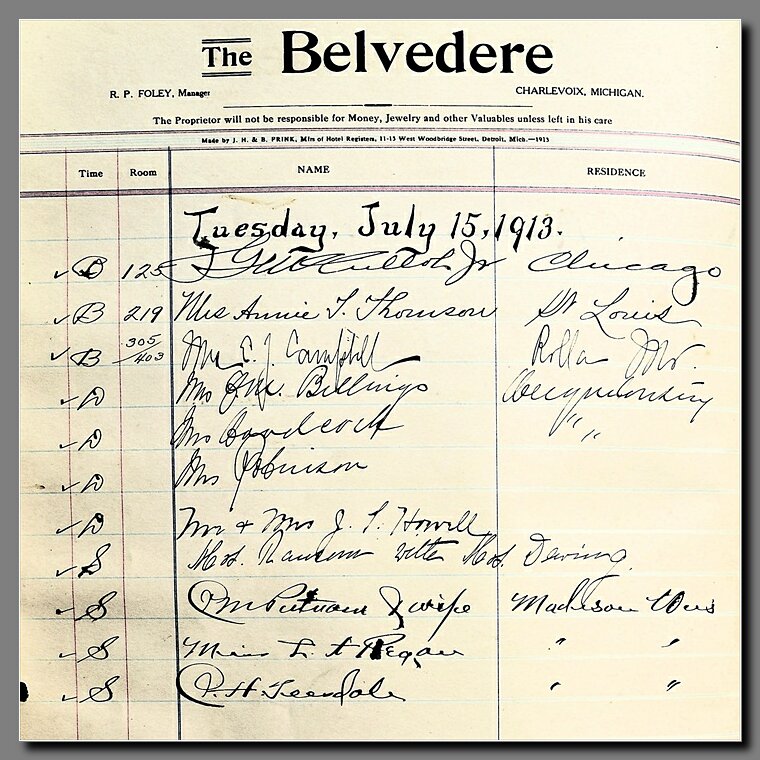 The Belvedere
R. P. FOLEY, Manager CHARLEVOIX, MICHIGAN.
The Proprietor will not be responsible for Money, Jewelry and other Valuables unless left in his care
Made by J. H. & B. PRINK, Mfrs of Hotel Registers, 11-15 West Woodbridge Street, Detroit, Mich.—1913
Time Room NAME RESIDENCE
Tuesday, July 15, 1913.
✓ B 125 Jr Chicago
✓ B 219 Mrs Annie T. Thomson St Louis
✓ B 305/403 Mrs E. J. Campbell Rolla Mo.
✓ D Mrs Billings
✓ D Mrs Bandcock " "
✓ D Mrs Robinson
✓ D Mr & Mrs J. T. Howell
✓ S Mrs. Ransom with Mrs. Dewing.
✓ S Putnam & wife Madison Wis
✓ S Miss L. A. Regan " "
✓ S P. H. Teesdale " "